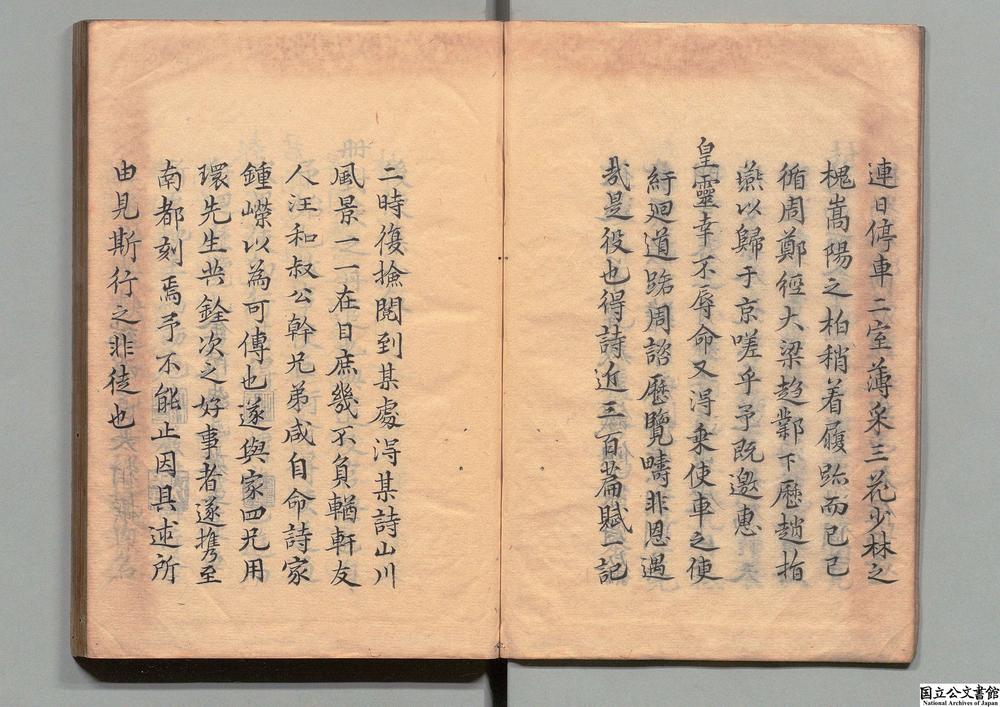 連日停車二室薄采三花少林之
槐嵩陽之柏稍着履跡而已已
循周鄭徑大梁趋鄴下歷趙指
燕以歸于京嗟乎予既邀惠
皇靈幸不辱命又得乗使車之使
紆廻道路周諮歷覽疇非恩遇
哉是役也得詩近三百篇賦一記
二時復撿閱到某處淂某詩山川
風景一一在目庶幾不負輶軒友
人汪和叔公幹兄弟咸自命詩家
鍾嶸以為可傳也遂與家四兄用
環先生共銓次之好事者遂携至
南都刻焉予不能止因具述所
由見斯行之非徒也
国立公文書館
National Archives of Japan